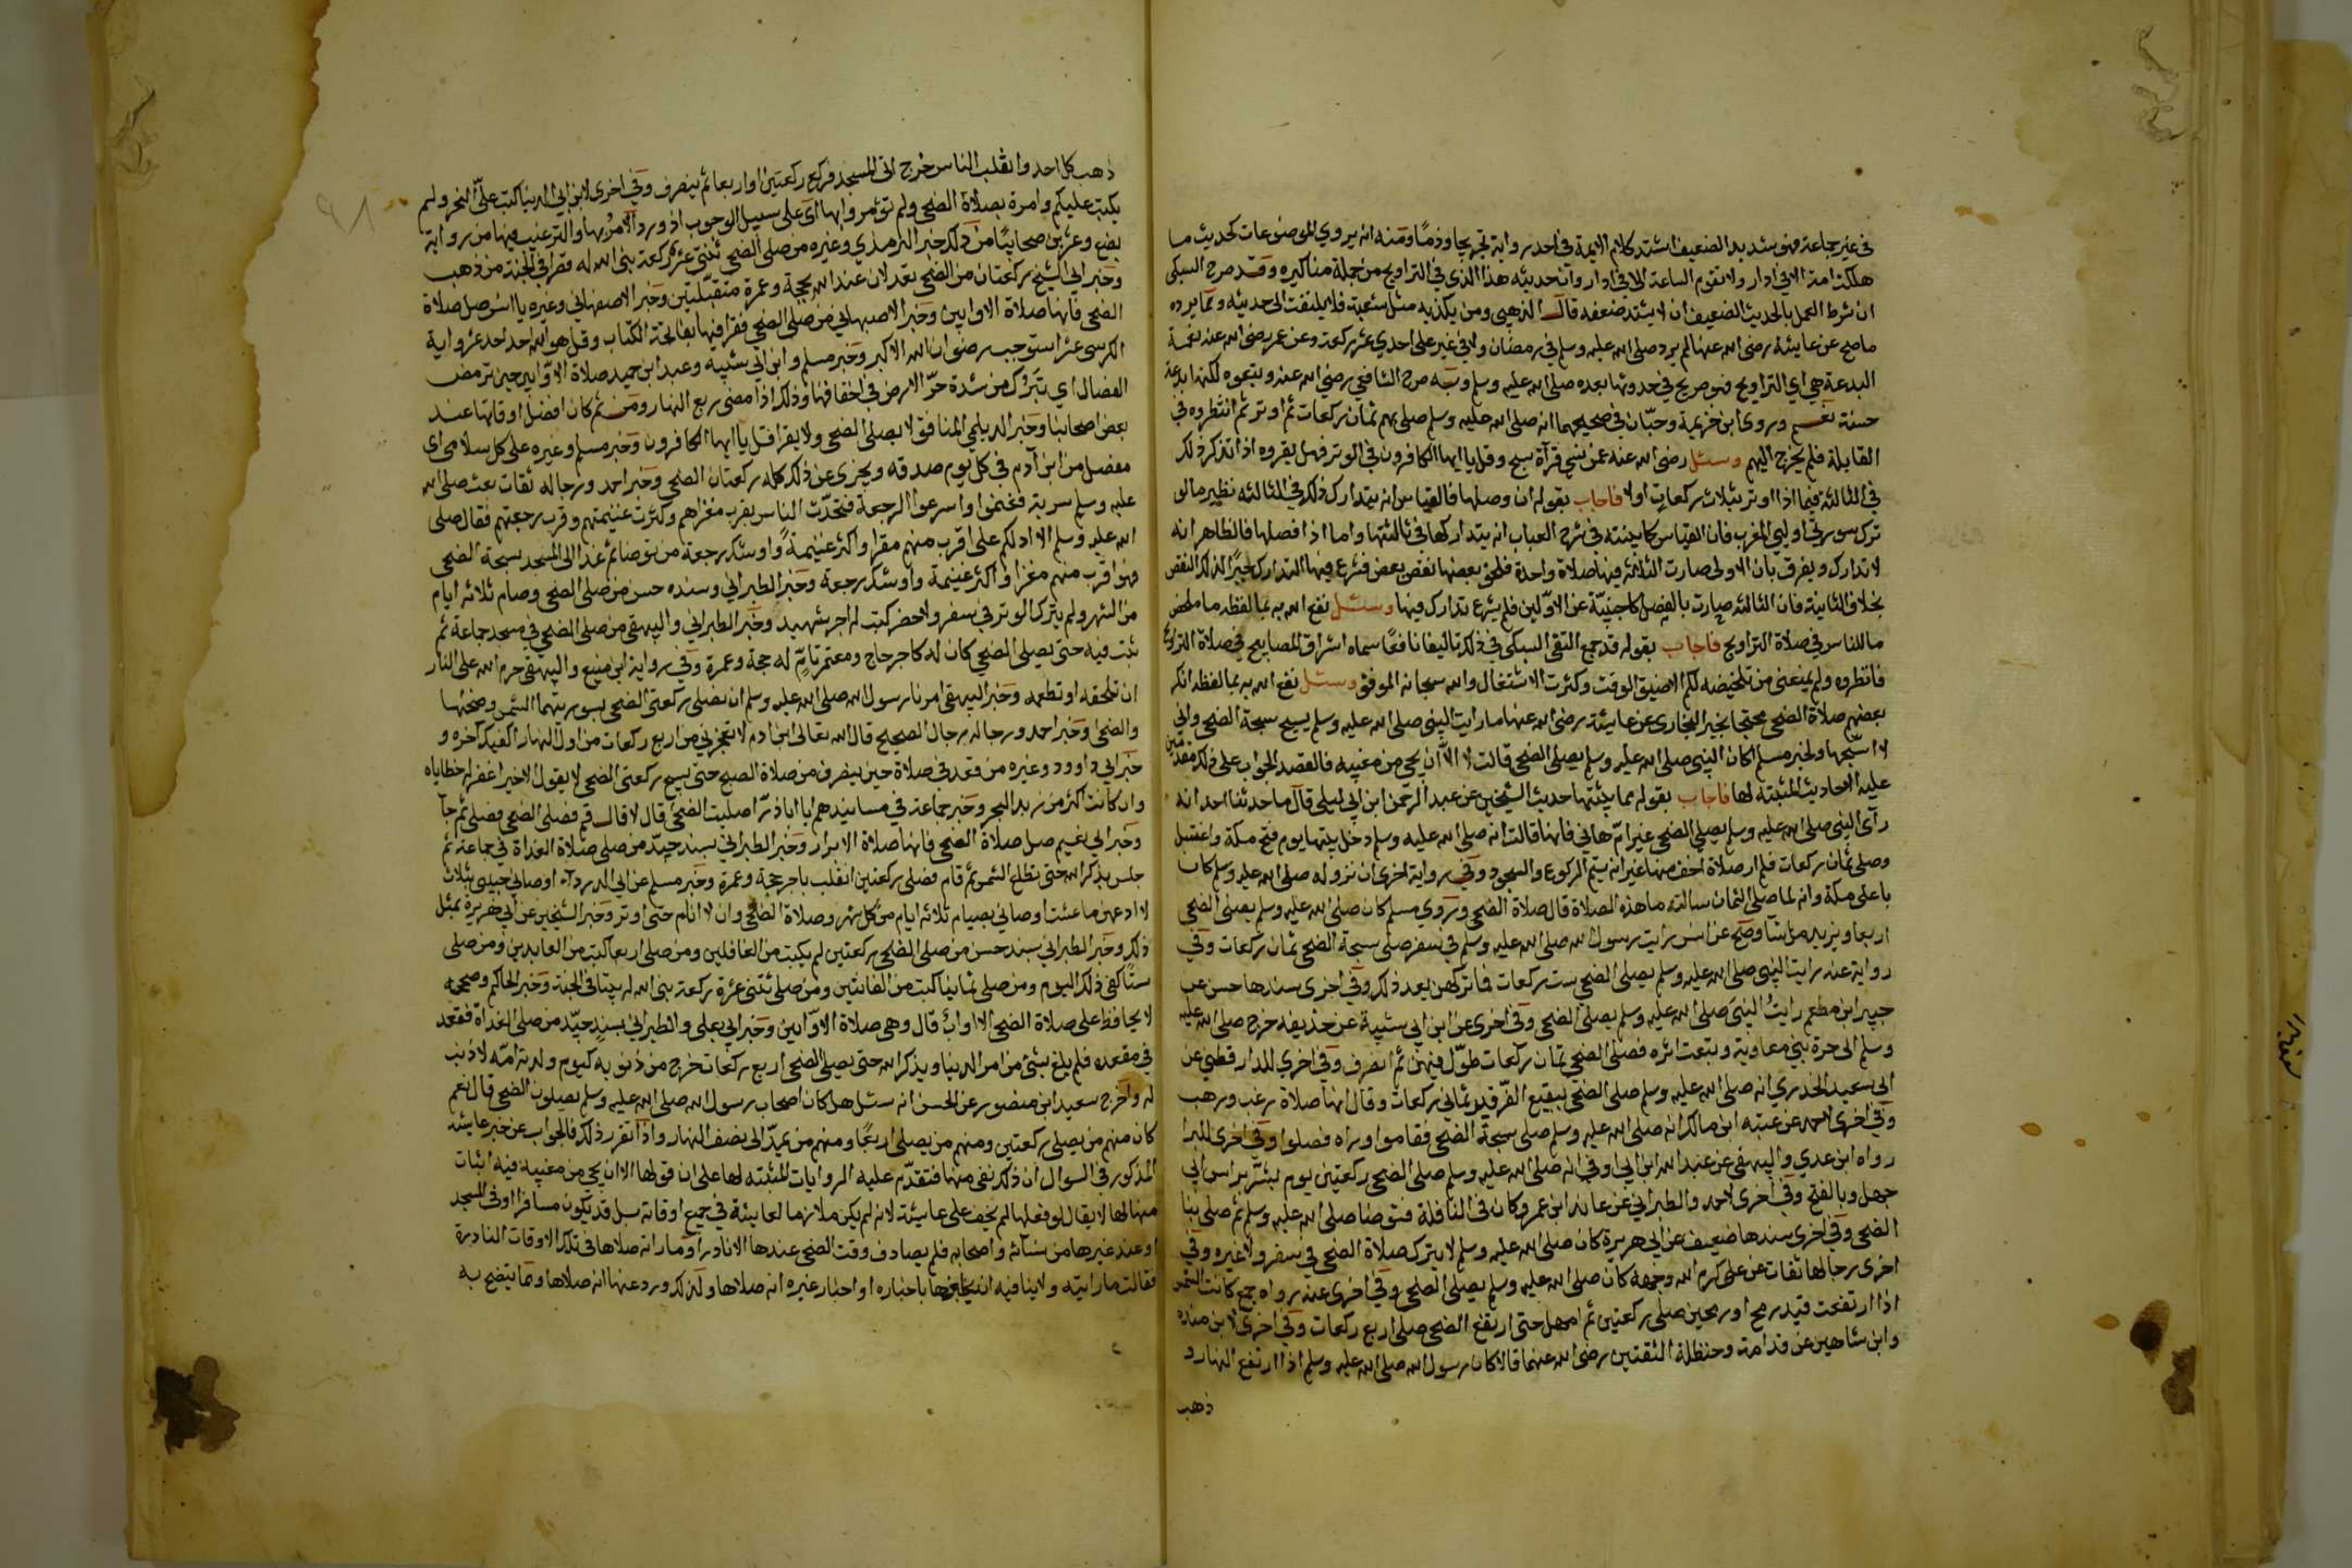 في غير جماعة فهو شديد الضعيف اشتد كلام الايمة في احد رواية تجريحا وذما ومنه انه يروي الموضوعات كحديث ما
هلكت امة الا في ادار ولا تقوم الساعة الا في ادار وان حديثه هذا الذي في التراويح من جملة مناكيره وقد صرح السبكى
ان شرط العمل بالحديث الضعيف ان لا يشتد ضعفه قال الذهبى ومن يكذبه مثل شعبة فلا يلتفت الى حديثه ومما يرده
ما صح عن عايشة رضى الله عنها لم يرد صلى الله عليه وسلم في رمضان ولا في غير على احدي عشر ركعة وعن عمر رضى الله عنه نعمة
البدعة هي اي التراويح فهو صريح في حدوثها بعده صلى الله عليه وسلم وبه صرح الشافعي رضي الله عنه وتبعوه لكنها بدعة
حسنة نعم وروى ابن خزيمة وحبان في صحيحهما انه صلى الله عليه وسلم صلى بهم ثمان ركعات ثم اوتر ثم انتظروه في
القابلة فلم يخرج اليهم وسئل رضى الله عنه عمن نسي قرآة سبح وقل يا ايها الكافرون في الوتر فهل يقروه اذا تذكر ذلك
في الثالثة فيما اذا اوتر بثلاث ركعات اولا فاجاب بقوله ان وصلها فالقياس انه يتدارك ذلك في الثالثه نظير ما لو
ترك سورتي اوليي المغرب فان القياس كما بينته في شرح العباب انه يتداركها في ثالثتها واما اذا فصلها فالظاهر انه
لا تدارك ويفرق بان الاولى صارت الثلاثه فيها صلاة واحدة فلحق بعضها نقص بعض فشرع فيها التدارك جبرا لذلك النقص
بخلاف الثانية فان الثالثه صارت بالفصل كاجنبية عن الاولين فلم يشرع تدارك فيها وسئل نفع الله به بما لفظه ما ملخص
ما للناس في صلاة التراويح فاجاب بقوله قد جمع التقى السبكى في ذلك تاليفا نافعا سماه اشراق المصابيح في صلاة التراويح
فانظروه ولم يمنعنى من تلخيصه لكم الا ضيق الوقت وكثرت الاشتغال والله سبحانه الموفق وسئل نفع الله به بما لفظه انكر
بعضهم صلاة الضحى محتجا بخبر البخارى عن عايشة رضى الله عنها ما رايت النبى صلى الله عليه وسلم يسبح سبحة الضحى واني
لا اسبحها ولخبر مسلم اكان النبى صلى الله عليه وسلم يصلى الضحى قالت لا الا ان يجي من مغيبه فالقصد الجواب على ذلك مقدمين
عليه الاحاديث المثبته لها فاجاب بقوله مما يثبتها حديث الشيخين عن عبد الرحمن ابن ابي ليلى قال ما حدثنا احد انه
رآى النبى صلى الله عليه وسلم يصلى الضحى غير ام هاني فانها قالت انه صلى الله عليه وسلم دخل بيتها يوم فتح مكة واغتسل
وصلى ثمان ركعات فلم ار صلاة اخف منها غير انه يتم الركوع والسجود وفى رواية اخرى ان نزوله صلى الله عليه وسلم كان
باعلى مكة وانه لما صلى الثمان سالته ما هذه الصلاة قال صلاة الضحى وروي مسلم كان صلى الله عليه وسلم يصلى الضحى
اربعا ويزيد ما شآ وصح عن انس رايت رسول الله صلى الله عليه وسلم في سفر صلى سبحة الضحى ثمان ركعات وفي
رواية عنه رايت النبى صلى الله عليه وسلم يصلى الضحى ست ركعات فما تركهن بعد ذلك وفي اخرى سندها حسن عن
جبير ابن مطعم رايت النبي صلى الله عليه وسلم يصلى الضحى وفى اخرى عن ابن ابى شيبة عن حذيفه خرج صلى الله عليه
وسلم الى حرة بني معاوية وتبعت اثره فصلى الضحى ثمان ركعات طول فيهن ثم انصرف وفي اخرى للدارقطني عن
ابى سعيد الخدري انه صلى الله عليه وسلم صلى الضحى ببقيع الفرقد ثماني ركعات وقال انها صلاة رغب ورهب
وفي اخرى لاحمد عن عتبه ابن مالك انه صلى الله عليه وسلم صلى سبحة الضحى فقاموا وراه فصلوا وفي اخرى
رواه ابن عدي والبيهقى عن عبد الله ابن ابي اوفي انه صلى الله عليه وسلم صلى الضحى ركعتين يوم بشر براس ابي
جهل وبالفتح وفي اخرى لاحمد والطبراني عن عايد ابن عمرو كان في النافلة فتوضا صلى الله عليه وسلم ثم صلى بنا
الضحى وفي اخرى سندها ضعيف عن ابي هريرة كان صلى الله عليه وسلم لا يترك صلاة الضحى في سفر ولا غيره وفي
اخرى رجالها ثقات عن على كرم الله وجهه كان صلى الله عليه وسلم يصلى الضحى وفي اخرى عنه رواه جمع كانت الشمس
اذا ارتفعت قيد رمح او رمحين صلى ركعتين ثم امهل حتى ارتفع الضحى صلى اربع ركعات وفي اخرى لابن منده
وابن شاهين عن قدامة وحنظلة الثقتين رضى الله عنهما قالا كان رسول الله صلى الله عليه وسلم اذا ارتفع النهار و
ذهب
ذهب كل احد وانقلب الناس خرج الى المسجد فركع ركعتين او اربعا ثم ينصرف وفي اخرى لابن ابي الدنيا كتب على النحر ولم
يكتب عليكم وامرة بصلاة الضحى ولم تؤمروا بها اى على سبيل الوجوب اذ ورد الامر بها والترغيب فيها من رواية
بضع وعشرين صحابيا من ذلك خبر الترمذي وغيره من صلى الضحى ثنتي عشر ركعة بنى الله له قصرا في الجنة من ذهب
وخبر ابي الشيخ ركعتان من الضحى تعدلان عند الله بحجة وعمرة متقبلتين وخبر الاصفهاني وغيره يا انس صل صلاة
الضحى فانها صلاة الاوابين وخبر الاصبهاني من صلى الضحى فقرا فيها بفاتحة الكتاب وقل هو الله احد احد عشر واية
الكرسى عشرا استوجب رضوان الله الاكبر وخبر مسلم وابن ابى شيبه وعبد ابن حميد صلاة الاوابين حين ترمض
الفصال اي تبرك من شدة حر الارض في اخفافها وذلك اذا مضى ربع النهار ومن ثم كان افضل اوقاتها عند
بعض اصحابنا وخبر الديلمي المنافق لا يصلى الضحى ولا يقرا قل يا ايها الكافرون وخبر مسلم وغيره على كل سلامى اى
مفصل من ابن آدم في كل يوم صدقه ويجزى عن ذلك كله ركعتان الضحى وخبر احمد ورجاله ثقات بعث صلى الله
عليه وسلم سرية فغنموا واسرعوا الرجعة فتحدث الناس بقرب مغزاهم وكثرت غنيمتهم وقرب رجعتهم فقال صلى
الله عليه وسلم الا ادلكم على اقرب منهم مقرا واكثر غنيمة واوشك رجعة من توضا ثم غذا الى المسجد بسبحة الضحى
فهو اقرب منهم مغزا واكثر غنيمة واوشك رجعة وخبر الطبراني وسنده حسن من صلى الضحى وصام ثلاثه ايام
من الشهر ولم يترك الوتر في سفر ولا حضر كتب له اجر شهيد وخبر الطبراني والبيهقى من صلى الصبح في مسجد جماعة ثم
ثبت فيه حتى يصلى الضحى كان له كاجر حاج ومعتمر تام له حجة وعمرة وفي رواية ابن منيع والبيهقى حرم الله على النار
ان تلحقه او تطعمه وخبر البيهقى امرنا رسول الله صلى الله عليه وسلم ان نصلى ركعتى الضحى بسورتيهما الشمس وضحيها
والضحى وخبر احمد ورجاله رجال الصحيح قال الله تعالى ابن ادم لا تعجزني من اربع ركعات من اول النهار اكفيك آخره و
خبر ابي داوود وغيره من قعد في صلاة حين ينصرف من صلاة الصبح حتى يسبح ركعتى الضحى لا يقول الا خيرا غفر له خطاياه
وان كانت اكثر من زبد البحر وخبر جماعة في مسانيدهم يا اباذر اصليت الضحى قال لا قال قم فصلى الضحى فصلى ثم جآ
وخبر ابي نعيم صل صلاة الضحى فانها صلاة الابرار وخبر الطبراني بسند جيد من صلى صلاة الغداة في جماعة ثم
جلس يذكر الله حتى تطلع الشمس ثم قام فصلى ركعتين انقلب باجر حجة وعمرة وخبر مسلم عن ابي الدرداء اوصاني حبيبى بثلاث
لا ادعهن ما عشت اوصاني بصيام ثلاثه ايام من كل شهر وصلاة الضحى وان لا انام حتى اوتر وخبر الشيخين عن ابي هريرة بمثل
ذلك وخبر الطبراني بسند حسن من صلى الضحى ركعتين لم يكتب من الغافلين ومن صلى اربعا كتب من العابدين ومن صلى
ستا كفى ذلك اليوم ومن صلى ثمانيا كتب من القانتين ومن صلى ثنتى عشرة ركعة بنى الله له بيتا في الجنة وخبر الحاكم وصححه
لا يحافظ على صلاة الضحى الا اواب قال وهى صلاة الاوابين وخبر ابي يعلى والطبراني بسند جيد من صلى الغداة فقعد
في مقعده فلم يلغ بشئ من امر الدنيا ويذكر الله حتى يصلى الضحى اربع ركعات خرج من ذنوبه كيوم ولدته امه لا ذنب
له واخرج سعيد ابن منصور عن الحسن انه سئل هل كان اصحاب رسول الله صلى الله عليه وسلم يصلون الضحى قال نعم
كان منهم من يصلى ركعتين ومنهم من يصلى اربعا ومنهم من يمد الى نصف النهار واذا تقرر ذلك فالجواب عن خبر عايشه
المذكور في السوال ان ذلك نفى منها فتقدم عليه الروايات المثبته لها على ان قولها الا ان يجى من مغيبه فيه اثبات
منها لها لا يقال لو فعلها لم يخف على عايشة لانه لم يكن ملازما لعايشة في جميع اوقاته بل قد يكون مسافرا او في المسجد
او عند غيرها من نسآئه واصحابه فلم يصادف وقت الضحى عندها الا نادرا وما راته صلاها في تلك الاوقات النادرة
فقالت ما رايته ولا ينافيه باخباره او اخبار غيره انه صلاها ولذلك ورد عنها انه صلاها ومما يتضح به